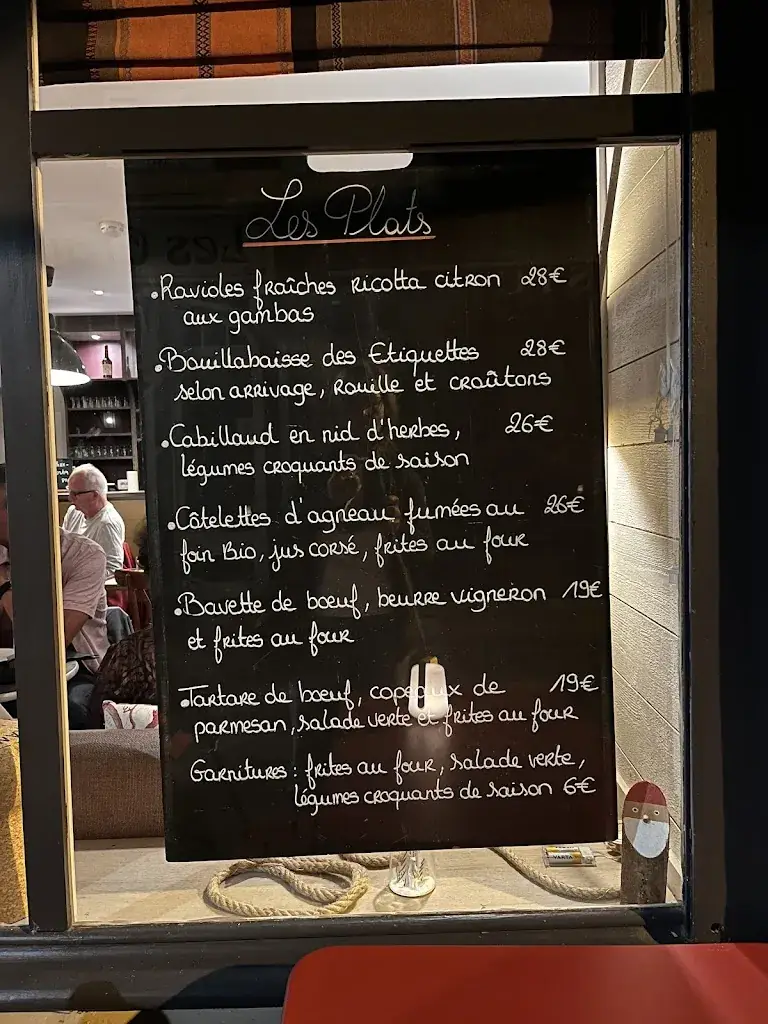 Les Plats
.Ravioles fraîches ricotta citron 28€
aux gambas
.Bouillabaisse des Etiquettes 28€
selon arrivage, Rouille et croûtons
.Cabillaud en nid d'herbes, 26€
légumes croquants de saison
.Côtelettes d'agneau fumées au 26€
foin Bio, jus corsé, frites au four
.Bavette de boeuf, beurre vigneron 19€
et frites au four
.Tartare de boeuf, copeaux de 19€
parmesan, salade verte et frites au four
Garnitures : frites au four, salade verte,
légumes croquants de saison 6€
VARTA